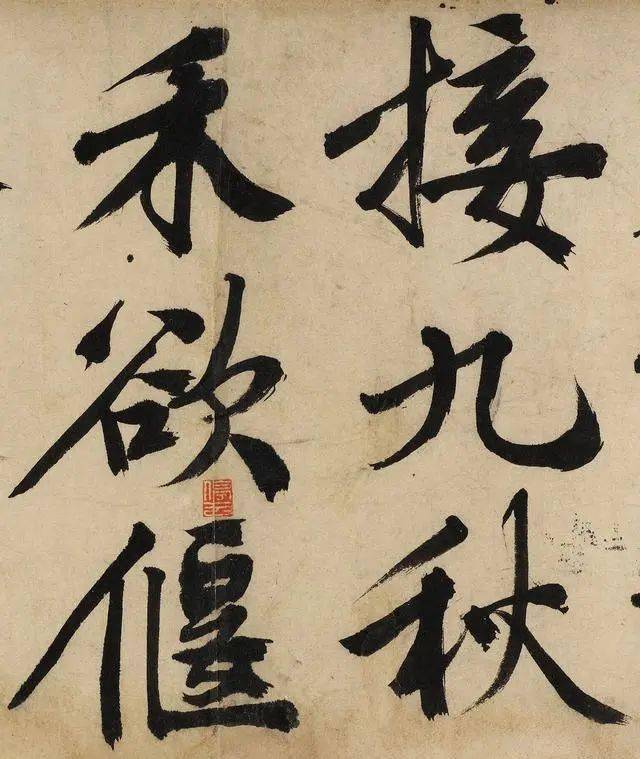 接九秋
禾欲偃